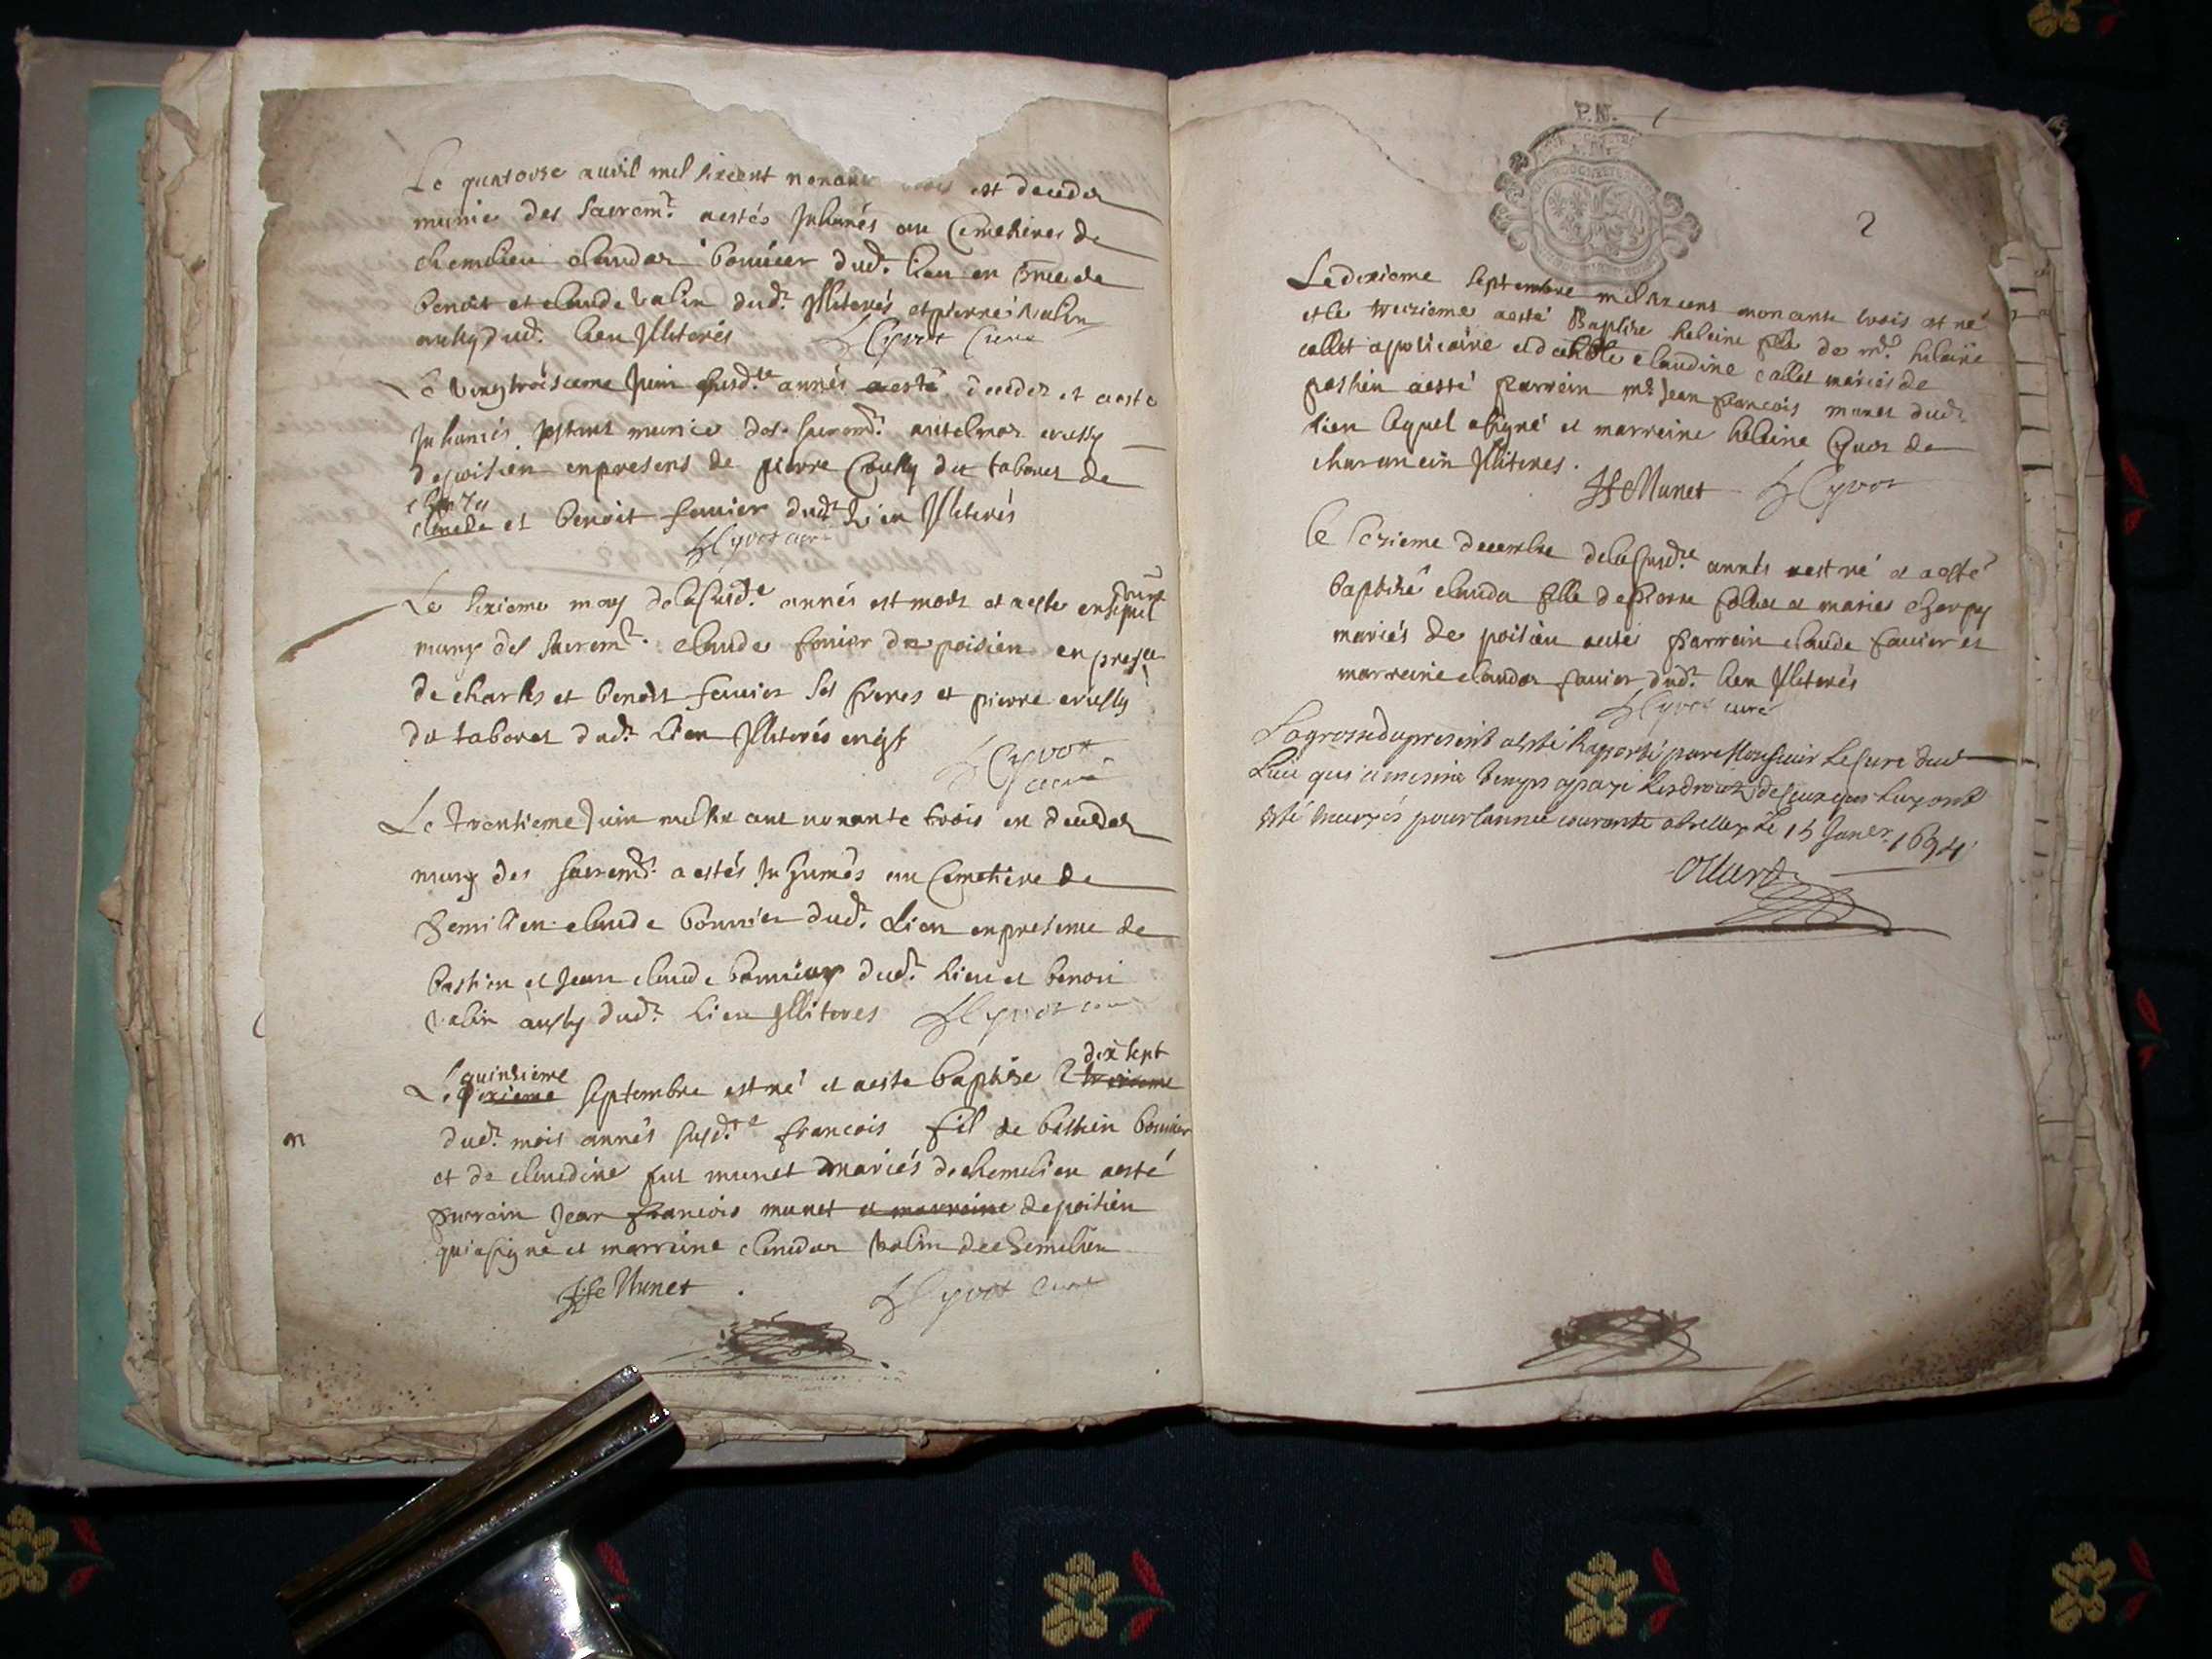 Le quatorse auvil mil sixcent nonante trois est decedez
munie des Sacrem.t aestés Inhumés au Cemetiere de
chemilieu claudaz bonnier dud.t lieu en pnce de
benoit et claude valin dud.t Illiterés et pierre valin
aussy dud.t lieu Illiterés Hyvot Curé
Le vingtroisieme Juin susd.te année decedez et aesté
Inhumés estant munie des sacrem.t antelmaz crussy
de poisieu en presens de pierre Crussy du tabouret de
et benoit fauier dud.t Lieu Illiterés
Hyvot curé
Le sixieme may de la susd.te année est mort et aeste
muny des sacrem.t claude fauier de poisieu en presce
de charles et benoit fauier ses freres et pierre crussy
du tabouret dud.t Lieu Illiterés
Hyvot
curé
Le trentieme Juin mil six cent nonante trois est decedez
muny des sacrem.t a estés Inhumés au Cemetiere de
chemilieu claude bonnier dud.t Lieu en presence de
bastien et Jean claude bonnier dud.t Lieu et benoi
valin aussy dud.t Lieu Illiteres Hyvot curé
quinsieme dix sept
Le dixieme septembre est né et aeste baptise le treizieme
dud.t mois année susd.te francois fil de bastien bonnier
et de claudine munet mariés de chemilieu aesté
parrain Jean francois munet et marreine de poisieu
qui a signé et marreine claudaz valin de chemilieu
JfcMunet Hyvot curé
P.N.
2
Le dixieme septembre mil six cens nonante trois est né
et le treizieme aesté Baptise heleine fille de m.e hilaire
callet apoticaire et de claudine callet mariés de
aesté parrain m.e Jean francois munet dud.t
lieu lequel a signé et marreine heleine de
Illiteres.
JfcMunet Hyvot
le sezieme decembre de la susd.te année est né et aesté
baptisé claude fille de pierre et maries
mariés de poisieu aesté parrain claude fauier et
marreine claudaz fauier dud.t lieu Illiterés
Hyvot curé
La grosse du present a esté Raporté par Monsieur Le Curé dud
Lieu qui a mesme temps a payé Les droits de ceux qui luy ont
esté pour lannée courante a belley Le 15 Janer 1694